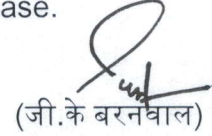 ase.
(जी.के बरनवाल)